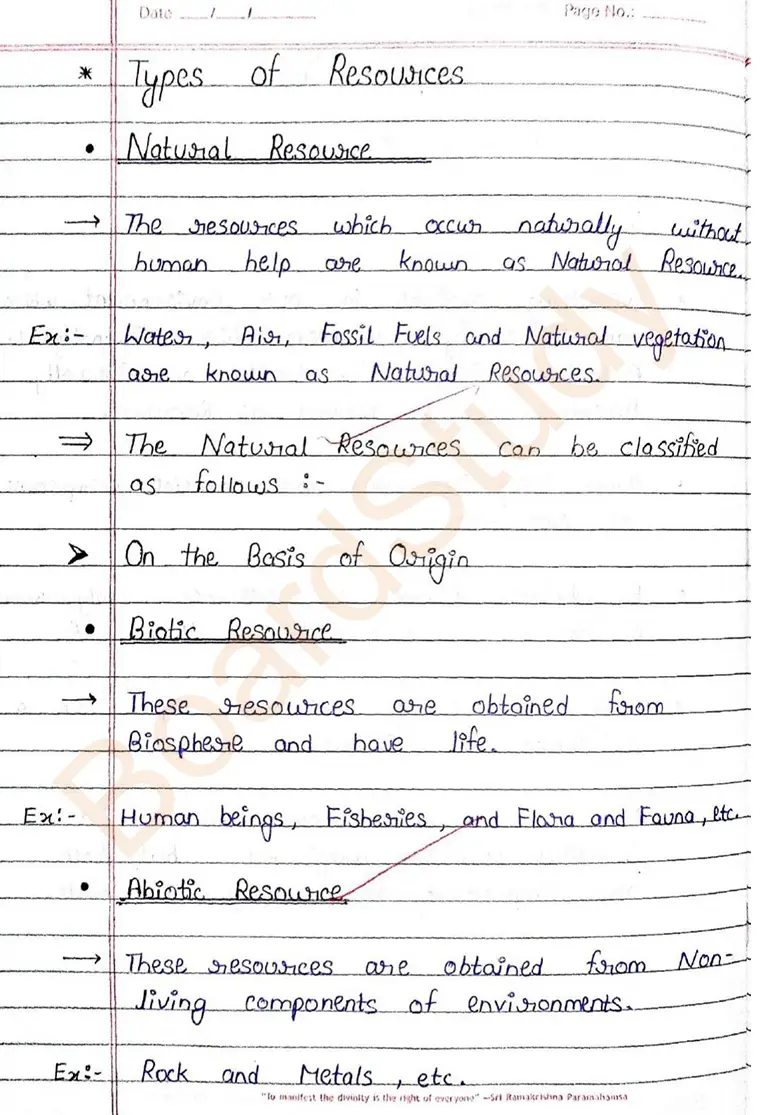 Date ___/___/______ Page No.: ______
* Types of Resources
• Natural Resource
→ The resources which occur naturally without
human help are known as Natural Resource.
Ex:- Water, Air, Fossil Fuels and Natural vegetation
are known as Natural Resources.
⇒ The Natural Resources can be classified
as follows :-
➤ On the Basis of Origin
• Biotic Resource
→ These resources are obtained from
Biosphere and have life.
Ex:- Human beings, Fisheries, and Flora and Fauna, etc.
• Abiotic Resource
→ These resources are obtained from Non-
living components of environments.
Ex:- Rock and Metals, etc.
"To manifest the divinity is the right of everyone" –Sri Ramakrishna Paramahamsa
BoardStudy